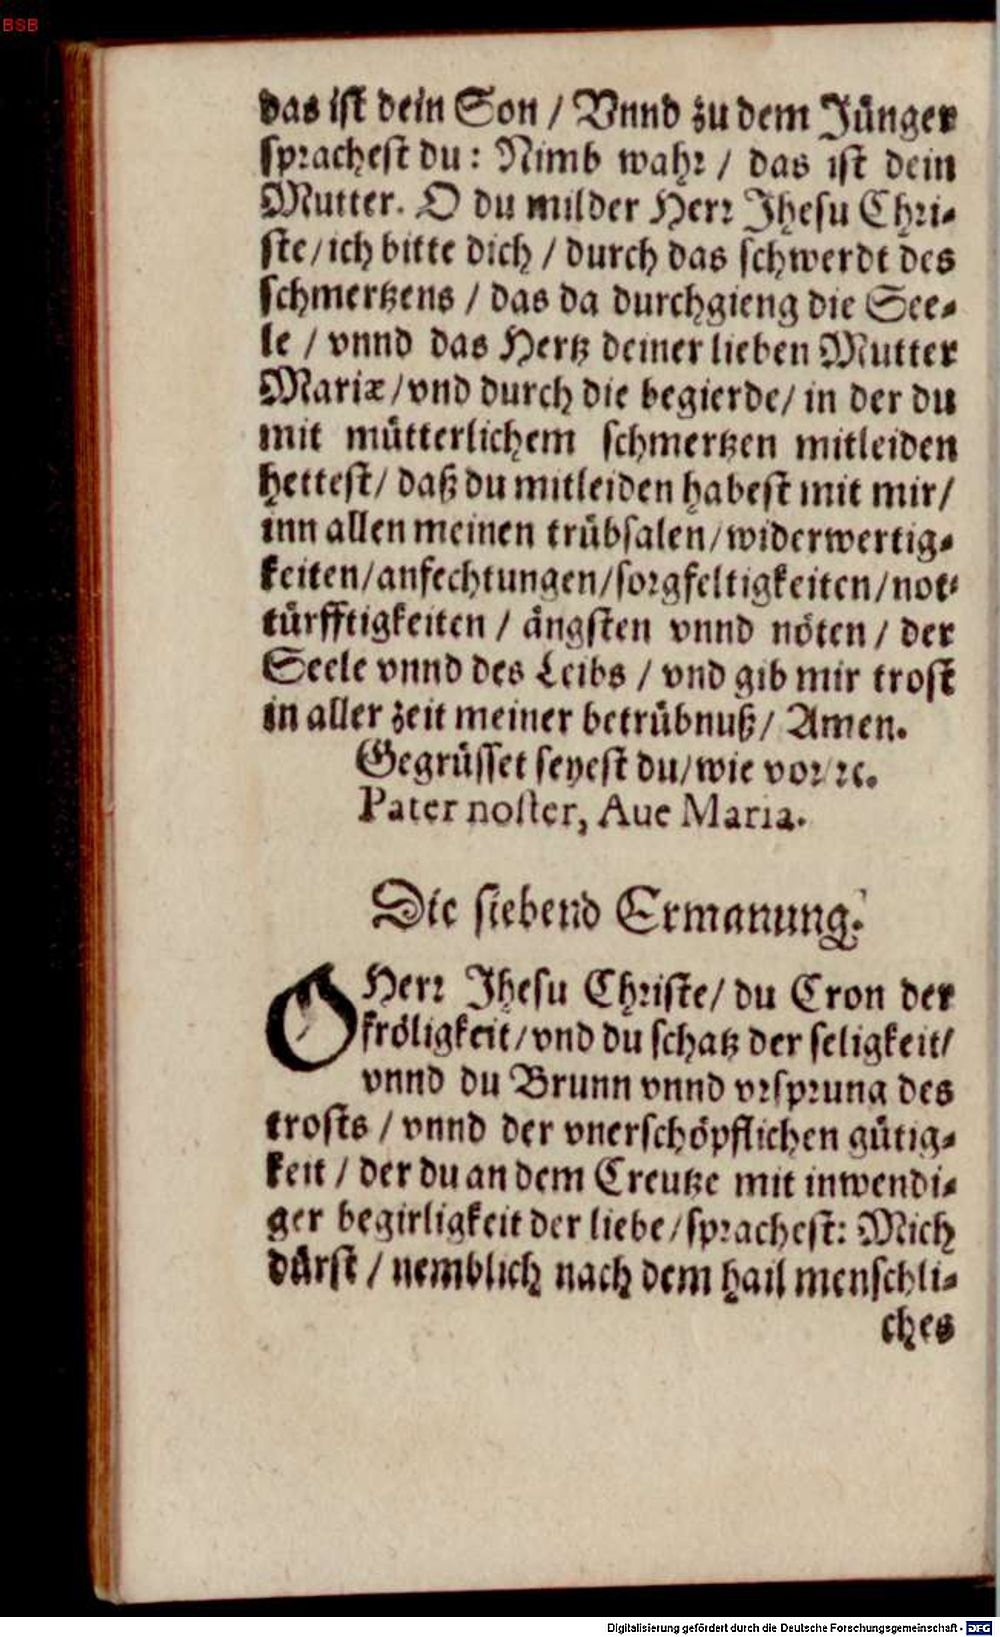 BSB
das ist dein Son / Vnnd zu dem Jünger
sprachest du: Nimb wahr / das ist dein
Mutter. O du milder Herr Jhesu Chri-
ste/ich bitte dich / durch das schwerdt des
schmertzens / das da durchgieng die See-
le / vnnd das Hertz deiner lieben Mutter
Mariæ/vnd durch die begierde/ in der du
mit mütterlichem schmertzen mitleiden
hettest/ daß du mitleiden habest mit mir/
inn allen meinen trübsalen/widerwertig-
keiten/anfechtungen/sorgfeltigkeiten/not-
türfftigkeiten / ängsten vnnd nöten / der
Seele vnnd des Leibs / vnd gib mir trost
in aller zeit meiner betrübnuß/ Amen.
Gegrüsset seyest du/wie vor/ ꝛc.
Pater noster, Aue Maria.
Die siebend Ermanung.
O Herr Jhesu Christe/ du Cron der
fröligkeit/vnd du schatz der seligkeit/
vnnd du Brunn vnnd vrsprung des
trosts / vnnd der vnerschöpflichen gütig-
keit / der du an dem Creutze mit inwendi-
ger begirligkeit der liebe/sprachest: Mich
dürst / nemblich nach dem hail menschli-
ches
Digitalisierung gefördert durch die Deutsche Forschungsgemeinschaft - DFG